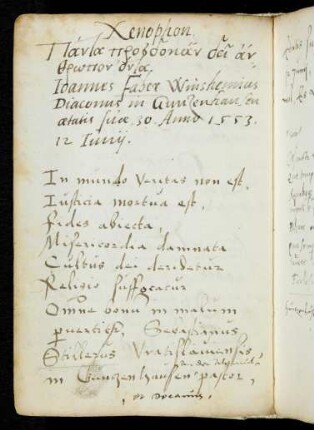 Xenophon.
Πάντα προσδοκᾶν δεῖ ἄν
θρωπον ὄντα.
Ioannes Faber Winshemius
Diaconus in Guntzenhausen
ætatis suæ 30. Anno 1553.
12 Iunij.
In mundo Veritas non est,
Iusticia mortua est,
Fides abiecta,
Misericordia damnata
Cultus dei deridetur
Religio suffocatur
Omne bonū in malum
pvertitur, Sebastianus
Stillerus Vratislauiensis,
in Guntzenhausen pastor,